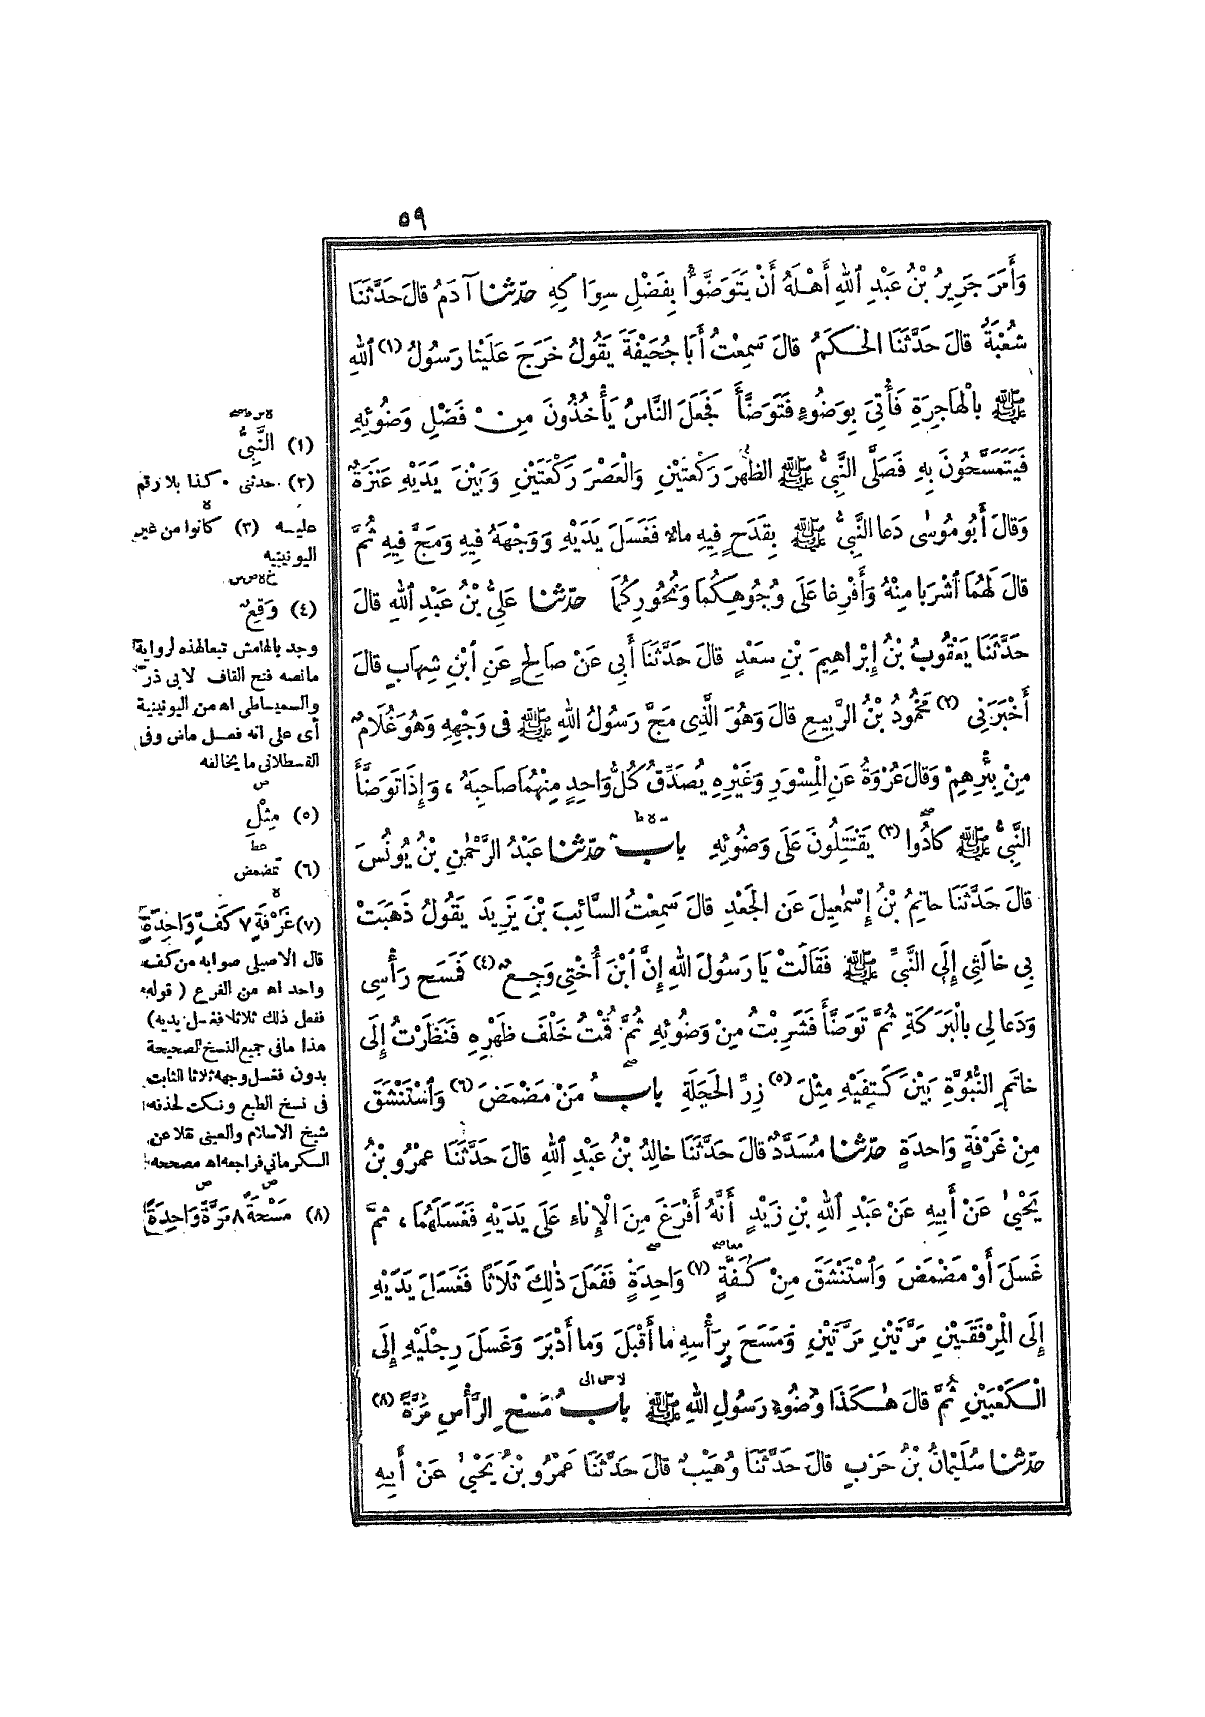 ٥٩
وَأَمَرَ جَرِيرُ بْنُ عَبْدِ اللهِ أَهْلَهُ أَنْ يَتَوَضَّؤُا بِفَضْلِ سِوَاكِهِ حدثنا آدَمُ قالَ حَدَّثَنَا
شُعْبَةُ قالَ حَدَّثَنَا الحَكَمُ قالَ سَمِعْتُ أَبَا جُحَيْفَةَ يَقُولُ خَرَجَ عَلَيْنَا رَسُولُ (١) اللهِ
ﷺ بِالْهَاجِرَةِ فَأُتِيَ بِوَضُوءٍ فَتَوَضَّأَ فَجَعَلَ النَّاسُ يَأْخُذُونَ مِنْ فَضْلِ وَضُوئِهِ
فَيَتَمَسَّحُونَ بِهِ فَصَلَّى النَّبِيُّ ﷺ الظُّهْرَ رَكْعَتَيْنِ وَالْعَصْرَ رَكْعَتَيْنِ وَبَيْنَ يَدَيْهِ عَنَزَةٌ
وَقالَ أَبُو مُوسٰى دَعا النَّبِيُّ ﷺ بِقَدَحٍ فِيهِ ماءٌ فَغَسَلَ يَدَيْهِ وَوَجْهَهُ فِيهِ وَمَجَّ فِيهِ ثُمَّ
قالَ لَهُمَا اشْرَبَا مِنْهُ وَأَفْرِغا عَلَى وُجُوهِكُمَا وَنُحُورِكُمَا حدثنا عَلِيُّ بْنُ عَبْدِ اللهِ قالَ
حَدَّثَنَا يَعْقُوبُ بْنُ إِبْرَاهِيمَ بْنِ سَعْدٍ قالَ حَدَّثَنَا أَبِي عَنْ صَالِحٍ عَنِ ابْنِ شِهَابٍ قالَ
أَخْبَرَنِي (٢) مَحْمُودُ بْنُ الرَّبِيعِ قالَ وَهُوَ الَّذِى مَجَّ رَسُولُ اللهِ ﷺ فى وَجْهِهِ وَهُوَ غُلَامٌ
مِنْ بِئْرِهِمْ وَقالَ عُرْوَةُ عَنِ الْمِسْوَرِ وَغَيْرِهِ يُصَدِّقُ كُلُّ وَاحِدٍ مِنْهُمَا صَاحِبَهُ ، وَإِذَا تَوَضَّأَ
النَّبِيُّ ﷺ كادُوا (٣) يَقْتَتِلُونَ عَلَى وَضُوئِهِ باب حدثنا عَبْدُ الرَّحْمٰنِ بْنُ يُونُسَ
قالَ حَدَّثَنَا حاتِمُ بْنُ إِسْمٰعِيلَ عَنِ الجَعْدِ قالَ سَمِعْتُ السَّائِبَ بْنَ يَزِيدَ يَقُولُ ذَهَبَتْ
بِي خالَتِي إِلَى النَّبِيِّ ﷺ فَقَالَتْ يَا رَسُولَ اللهِ إِنَّ ابْنَ أُخْتِي وَجِعٌ (٤) فَمَسَحَ رَأْسِي
وَدَعا لِي بِالْبَرَكَةِ ثُمَّ تَوَضَّأَ فَشَرِبْتُ مِنْ وَضُوئِهِ ثُمَّ قُمْتُ خَلْفَ ظَهْرِهِ فَنَظَرْتُ إِلَى
خاتَمِ النُّبُوَّةِ بَيْنَ كَتِفَيْهِ مِثْلَ (٥) زِرِّ الحَجَلَةِ بابُ مَنْ مَضْمَضَ (٦) وَاسْتَنْشَقَ
مِنْ غَرْفَةٍ وَاحِدَةٍ حدثنا مُسَدَّدٌ قالَ حَدَّثَنَا خالِدُ بْنُ عَبْدِ اللهِ قالَ حَدَّثَنَا عَمْرُو بْنُ
يَحْيٰى عَنْ أَبِيهِ عَنْ عَبْدِ اللهِ بْنِ زَيْدٍ أَنَّهُ أَفْرَغَ مِنَ الْإِنَاءِ عَلَى يَدَيْهِ فَغَسَلَهُمَا ، ثُمَّ
غَسَلَ أَوْ مَضْمَضَ وَاسْتَنْشَقَ مِنْ كَفَّةٍ (٧) وَاحِدَةٍ فَفَعَلَ ذٰلِكَ ثَلَاثًا فَغَسَلَ يَدَيْهِ
إِلَى الْمِرْفَقَيْنِ مَرَّتَيْنِ مَرَّتَيْنِ وَمَسَحَ بِرَأْسِهِ ما أَقْبَلَ وَما أَدْبَرَ وَغَسَلَ رِجْلَيْهِ إِلَى
الْكَعْبَيْنِ ثُمَّ قالَ هٰكَذَا وُضُوءُ رَسُولِ اللهِ ﷺ بابُ مَسْحِ الرَّأْسِ مَرَّةً (٨)
حدثنا سُلَيْمَانُ بْنُ حَرْبٍ قالَ حَدَّثَنَا وُهَيْبٌ قالَ حَدَّثَنَا عَمْرُو بْنُ يَحْيٰى عَنْ أَبِيهِ
(١) النَّبِيُّ
(٢) حدثنى . كذا بلا رقم
عليه (٣) كانوا من غير
اليونينية
(٤) وَقِعٌ
وجد بالهامش تبعا لهذه لرواية
مانصه فتح القاف لابى ذر
والسميساطى اه من اليونينية
أى على انه فعل ماض وفى
القسطلانى ما يخالفه
(٥) مِثْلِ
(٦) تمضمض
(٧) غَرْفَةٍ ٧ كَفٍّ وَاحِدَةٍ
قال الاصيلى صوابه من كف
واحد اه من الفرع (قوله
ففعل ذلك ثلاثا فغسل يديه)
هذا ما فى جميع النسخ الصحيحة
بدون فغسل وجهه ثلاثا الثابت
فى نسخ الطبع ونكت لحذفه
شيخ الاسلام والعينى نقلا عن
الكرمانى فراجعه اه مصححه
(٨) مَسْحَةً ٨ مَرَّةً وَاحِدَةً